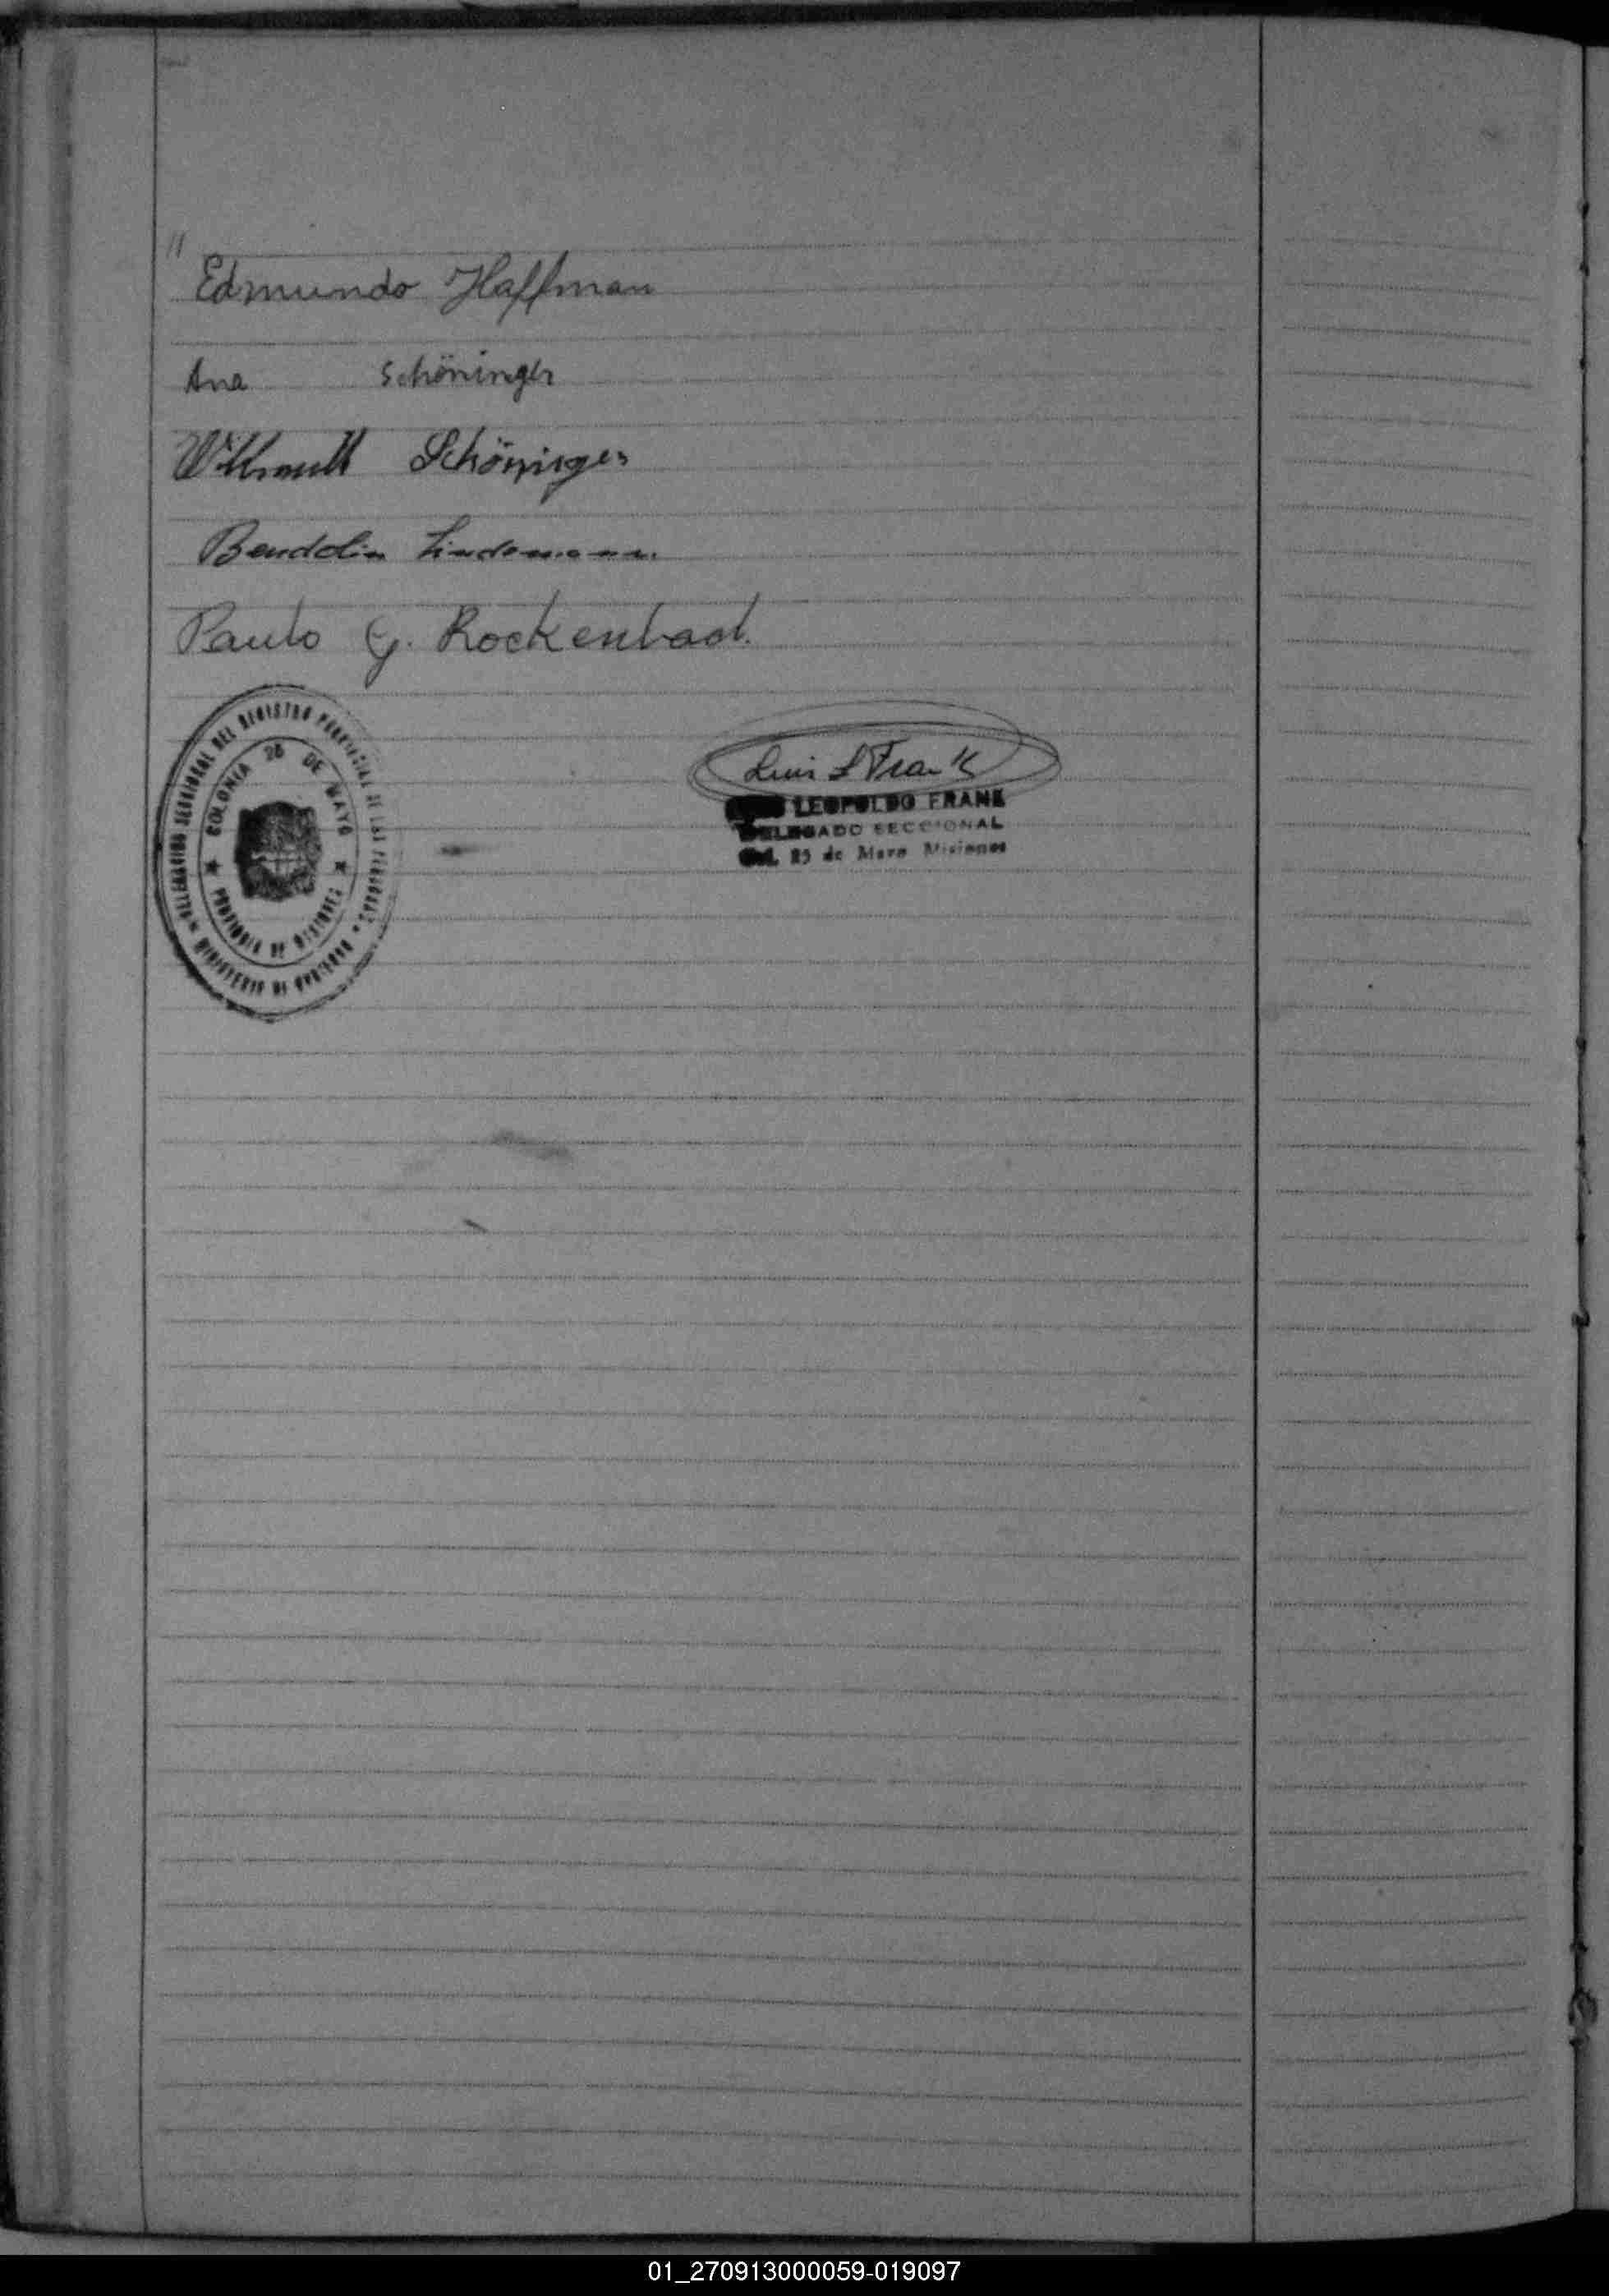 "
Edmundo Haffman
Ana Schöninger
Schöninger
Bendolin Lindemann.
Paulo G. Rockenbach.
DELEGACION SECCIONAL DEL REGISTRO PROVINCIAL DE LAS PERSONAS
MINISTERIO DE GOBIERNO
COLONIA 25 DE MAYO
PROVINCIA DE MISIONES
Luis L Frank
LEOPOLDO FRANK
DELEGADO SECCIONAL
Col. 25 de Mayo Misiones
01_270913000059-019097